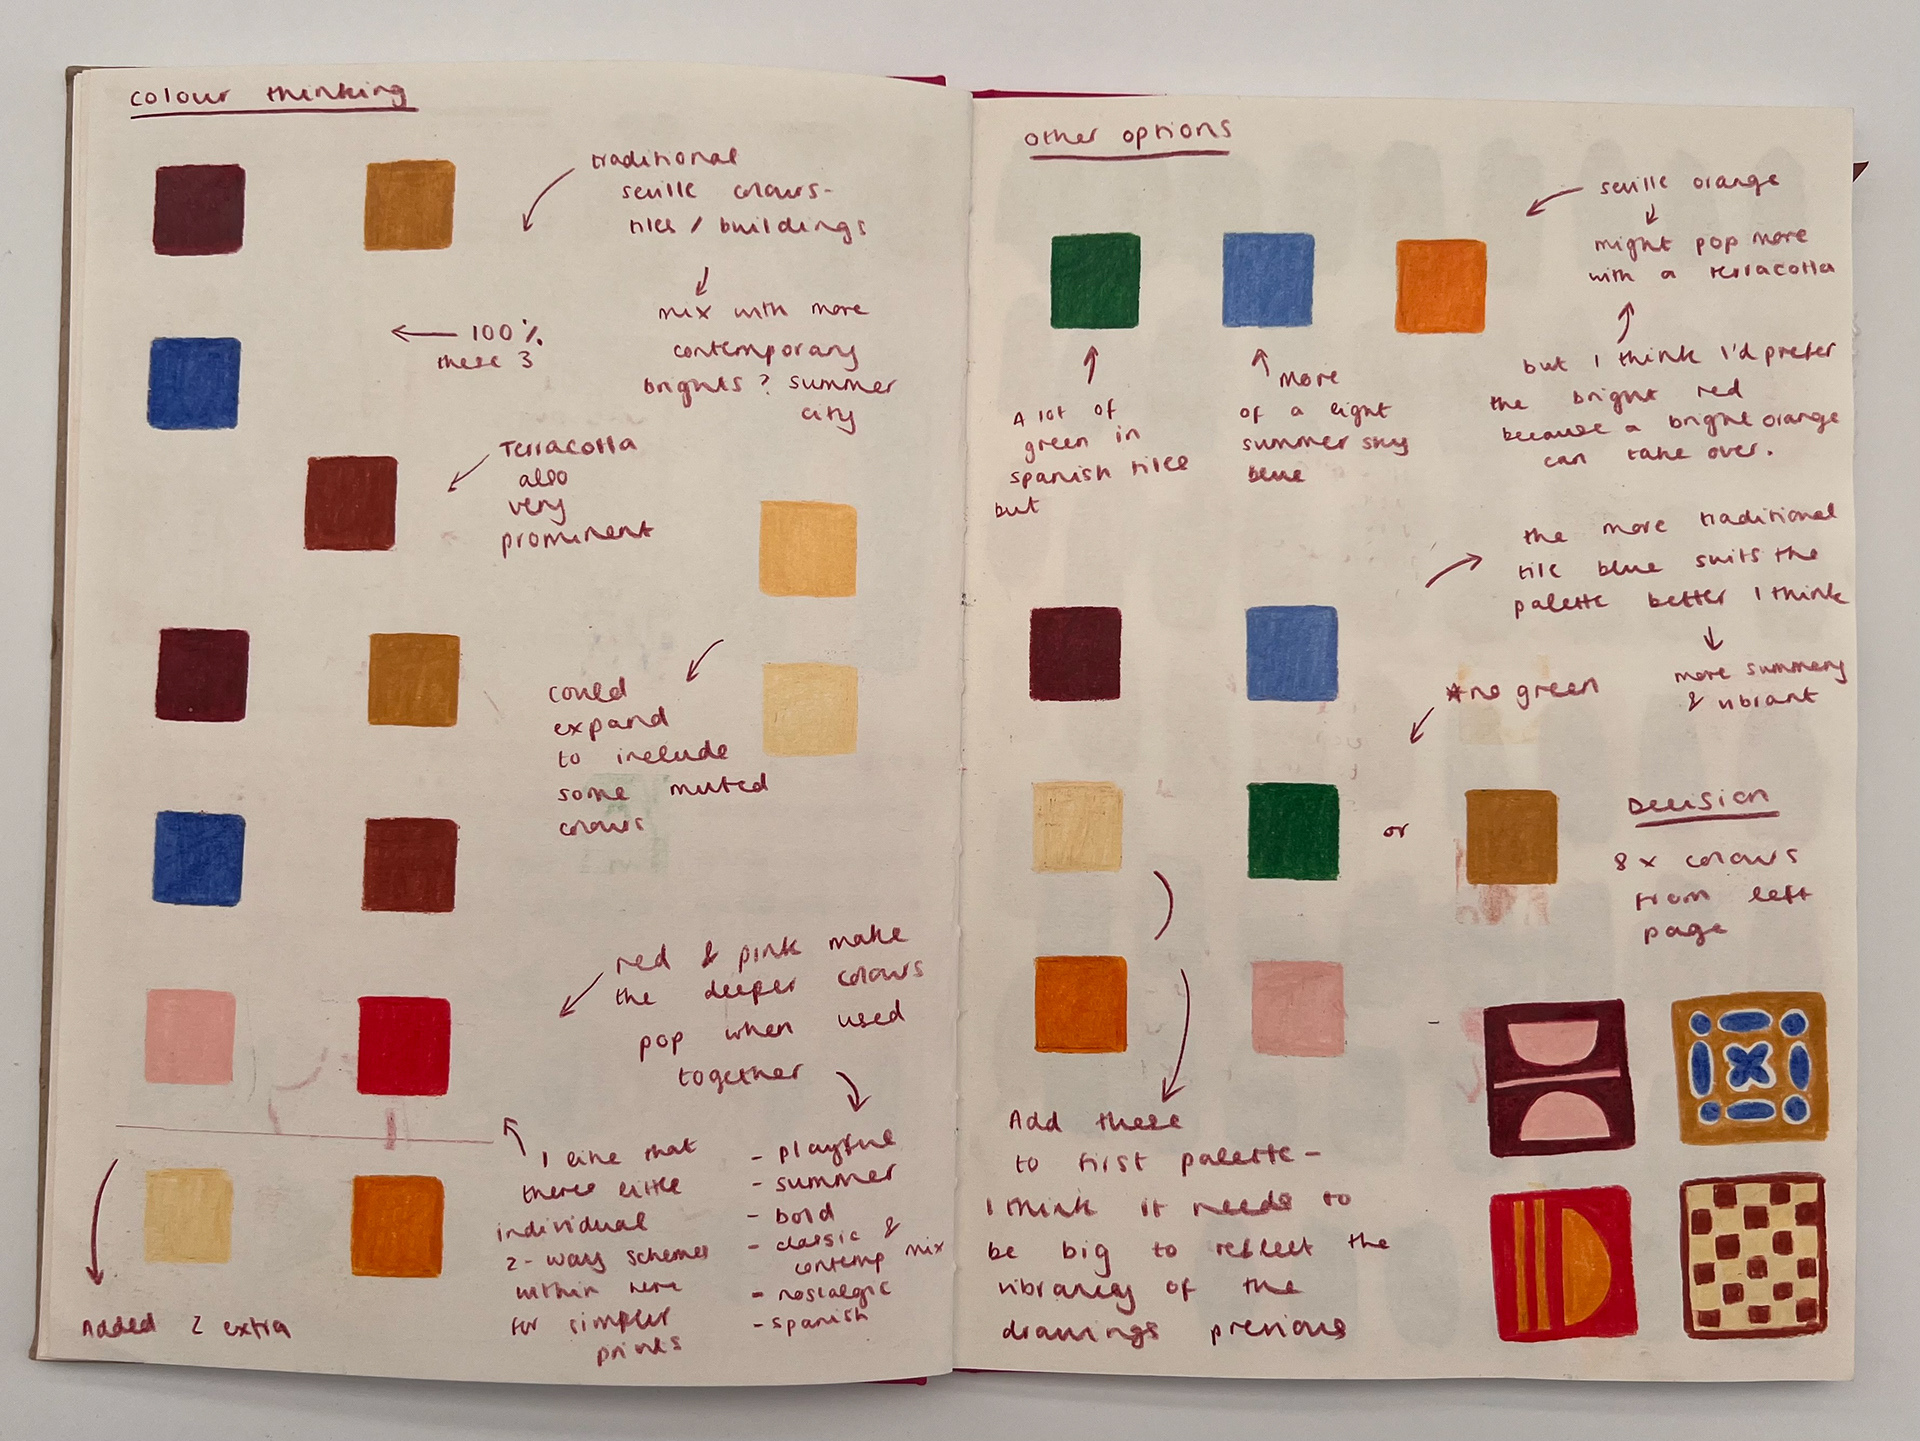 colour thinking
traditional
seville colours-
tiles / buildings
mix with more
contemporary
brights? summer
city
← 100%
these 3
Terracotta
also
very
prominent
could
expand
to include
some muted
colours
red & pink make
the deeper colours
pop when used
together
I like that
theres little
individual
2-way schemes
within here
for simpler
prints
- playful
- summer
- bold
- classic &
contemp mix
- nostalgic
- spanish
Added 2 extra
other options
seville orange
might pop more
with a terracotta
but I think I'd prefer
the bright red
because a bright orange
can take over.
A lot of
green in
spanish tiles
but
more
of a light
summer sky
blue
the more traditional
tile blue suits the
palette better I think
more summery
& vibrant
*no green
or
Decision
8 x colours
from left
page
Add these
to first palette-
I think it needs to
be big to reflect the
vibrancy of the
drawings previous